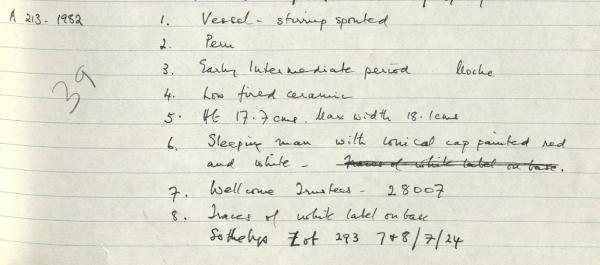 A 213-1982 1. Vessel - stirrup spouted
2. Peru
3. Early Intermediate period Moche
39
4. Low fired ceramic
5. Ht 17.7 cms. Max width 18.1 cms
6. Sleeping man with conical cap painted red
and white - Traces of white label on base.
7. Wellcome Trustees - 28007
8. Traces of white label on base
Sothebys Lot 293 7+8/7/24